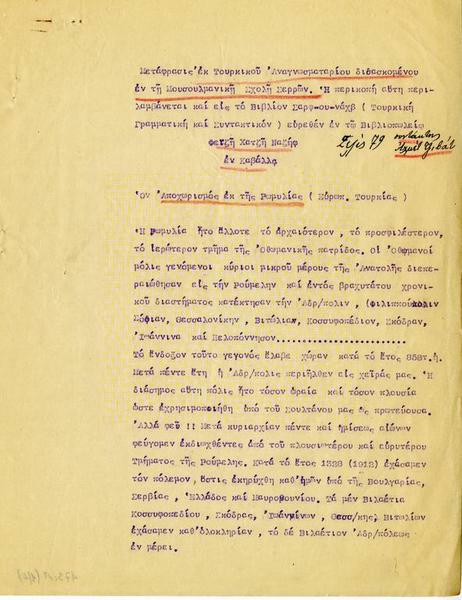 Μετάφρασις ἐκ Τουρκικοῦ Ἀναγνωσματαρίου διδασκομένου
ἐν τῇ Μουσουλμανικῇ Σχολῇ Σερρῶν. Ἡ περικοπὴ αὕτη περι-
λαμβάνεται καὶ εἰς τὸ Βιβλίον Σαρφ-ου-νάχβ ( Τουρκικὴ
Γραμματικὴ καὶ Συντακτικόν ) εὑρεθὲν ἐν τῷ Βιβλιοπωλείῳ
Φεῖζῆ Χατζῆ Ναζὴφ
Σελὶς 79
ἐν Καβάλλᾳ
Ὁν Ἀποχωρισμὸς ἐκ τῆς Ρωμυλίας ( Εὐρωπ. Τουρκίας )
Ἡ Ρωμυλία ἦτο ἄλλοτε τὸ ἀρχαιότερον , τὸ προσφιλέστερον,
τὸ ἱερώτερον τμῆμα τῆς Ὀθωμανικῆς πατρίδος. Οἱ Ὀθωμανοὶ
μόλις γενόμενοι κύριοι μικροῦ μέρους τῆς Ἀνατολῆς διεπε-
ραιώθησαν εἰς τὴν Ρούμελην καὶ ἐντὸς βραχυτάτου χρονι-
κοῦ διαστήματος κατέκτησαν τὴν Ἀδρ/πολιν , (Φιλιππούπολιν
Σόφιαν, Θεσσαλονίκην , Βιτώλια, Κοσσυφοπέδιον, Σκόδραν,
Ἰωάννινα καὶ Πελοπόννησον.....................
Τὸ ἔνδοξον τοῦτο γεγονὸς ἔλαβε χώραν κατὰ τὸ ἔτος 858τ.ἡ.
Μετὰ πέντε ἔτη ἡ Ἀδρ/πολις περιῆλθεν εἰς χεῖράς μας. Ἡ
διάσημος αὕτη πόλις ἦτο τόσον ὡραία καὶ τόσον πλουσία
ὥστε ἐχρησιμοποιήθη ὑπὸ τοῦ Σουλτάνου μας ὡς πρωτεύουσα.
Ἀλλὰ φεῦ !! Μετὰ κυριαρχίαν πέντε καὶ ἡμίσεως αἰώνων
φεύγομεν ἐκδιωχθέντες ἀπὸ τοῦ πλουσιωτέρου καὶ εὐρυτέρου
Τμήματος τῆς Ρούμελης. Κατὰ τὸ ἔτος 1328 (1912) ἐχάσαμεν
τὸν πόλεμον, ὅστις ἐκηρύχθη καθ'ἡμῶν ὑπὸ τῆς Βουλγαρίας,
Σερβίας , Ἑλλάδος καὶ Μαυροβουνίου. Τὰ μὲν Βιλαέτια
Κοσσυφοπεδίου , Σκόδρας, Ἰωαννίνων , Θεσσ/κης, Βιτωλίων
ἐχάσαμεν καθ'ὁλοκληρίαν , τὸ δὲ Βιλαέτιον Ἀδρ/πόλεως
ἐν μέρει.